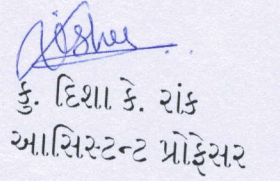 કુ. દિશા કે. રાંક
આસિસ્ટન્ટ પ્રોફેસર